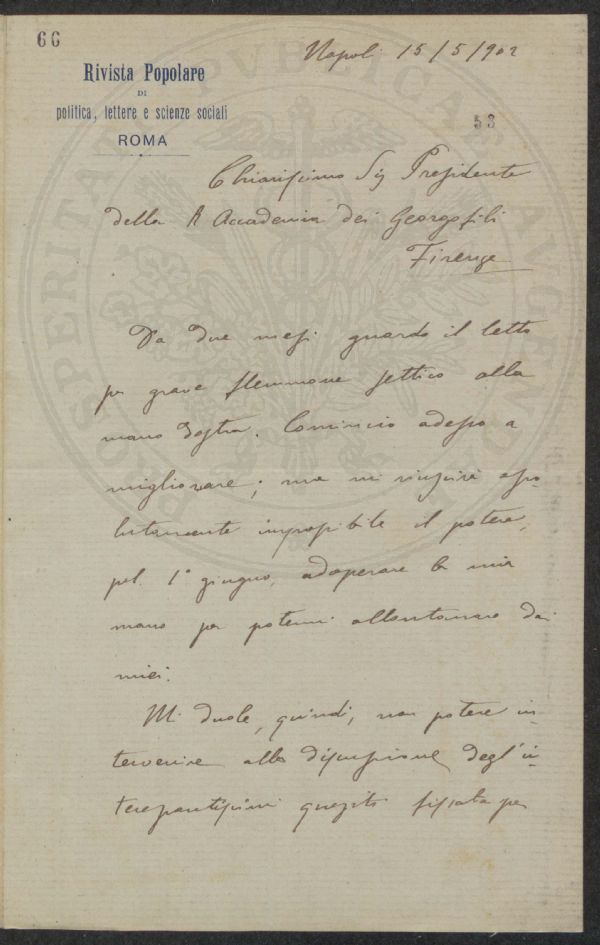 66
Napoli 15/5/902
Rivista Popolare
DI
politica, lettere e scienze sociali
ROMA
53
Chiarissimo Sig Presidente
della R Accademia dei Georgofili
Firenze
Da due mesi guardo il letto
per grave flemmone settico alla
mano destra. Comincio adesso a
migliorare; ma mi riuscirà asso
lutamente impossibile il potere,
pel 1° giugno, adoperare la mia
mano per potermi allontanare dai
miei.
Mi duole, quindi, non potere in-
tervenire alla discussione degl'in-
teressantissimi quesiti fissata per
PROSPERITATI PVBLICAE AVGENDAE